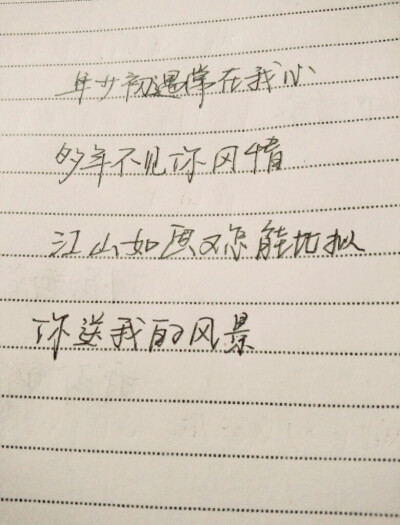 年少初遇常在我心
多年不见你风情
江山如画又怎能比拟
你送我的风景